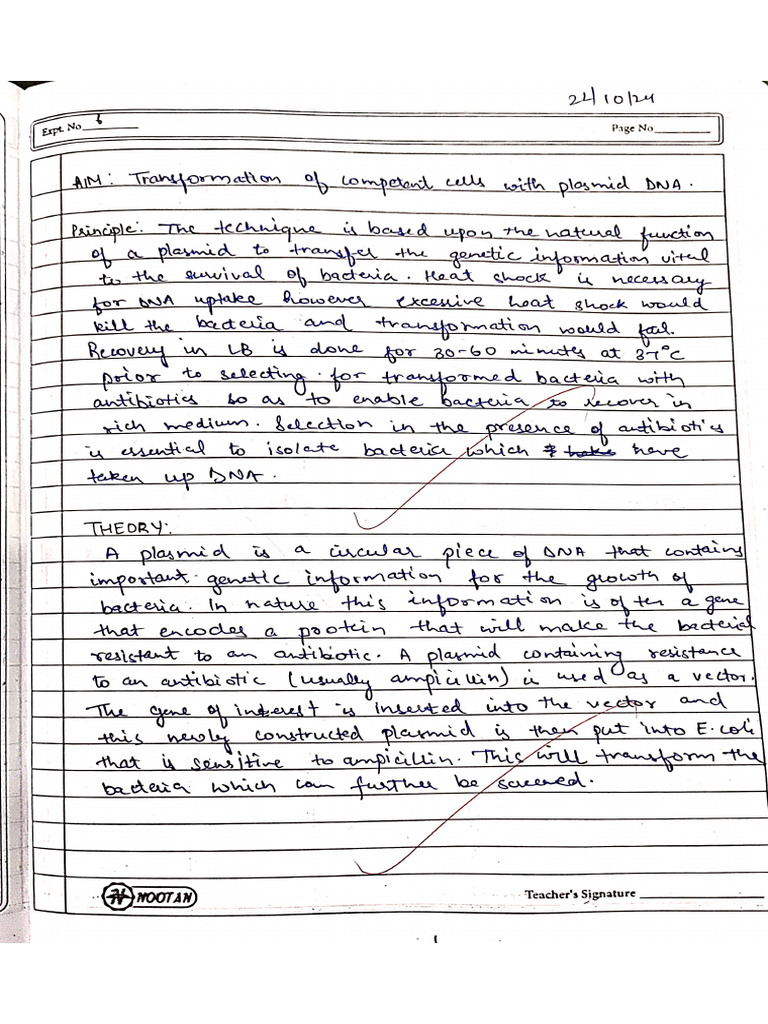 24/10/24
Expt. No 6
Page No
AIM: Transformation of competent cells with plasmid DNA.
Principle: The technique is based upon the natural function
of a plasmid to transfer the genetic information vital
to the survival of bacteria. Heat shock is necessary
for DNA uptake however excessive heat shock would
kill the bacteria and transformation would fail.
Recovery in LB is done for 30-60 minutes at 37°C
prior to selecting for transformed bacteria with
antibiotics so as to enable bacteria to recover in
rich medium. Selection in the presence of antibiotics
is essential to isolate bacteria which have
taken up DNA.
THEORY:
A plasmid is a circular piece of DNA that contains
important genetic information for the growth of
bacteria. In nature this information is often a gene
that encodes a protein that will make the bacterial
resistant to an antibiotic. A plasmid containing resistance
to an antibiotic (usually ampicillin) is used as a vector.
The gene of interest is inserted into the vector and
this newly constructed plasmid is then put into E.coli
that is sensitive to ampicillin. This will transform the
bacteria which can further be screened.
NOOTAN
Teacher's Signature